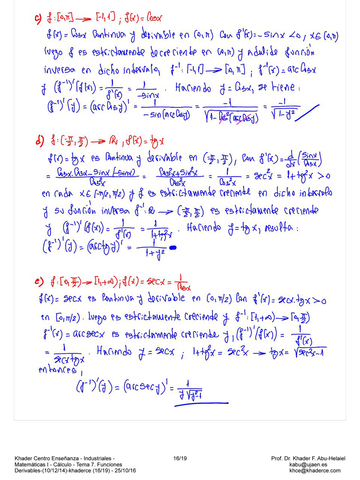 c) f: [0,π] → [-1,1] ; f(x) = Cosx
f(x) = Cosx Continua y derivable en (0,π) Con f'(x) = -sinx < 0, x ∈ (0,π)
luego f es estrictamente decreciente en (0,π) y admite función
inversa en dicho intervalo, f⁻¹: [-1,1] → [0,π] ; f⁻¹(x) = arc Cosx
y (f⁻¹)'(f(x)) = 1/f'(x) = 1/-sinx . Haciendo y = Cosx, se tiene:
(f⁻¹)'(y) = (arc Cosy)' = 1/-sin(arc Cosy) = -1/√(1-Cos²(arc Cosy)) = -1/√(1-y²)
d) f: (-π/2, π/2) → ℝ, f(x) = tgx
f(x) = tgx es Continua y derivable en (-π/2, π/2), Con f'(x) = d/dx (sinx/Cosx)
= Cosx.Cosx-sinx(-sinx)/Cos²x = Cos²x+sin²x/Cos²x = 1/Cos²x = sec²x = 1+tg²x > 0
en cada x ∈ (-π/2, π/2) y f es estrictamente creciente en dicho intervalo
y su función inversa f⁻¹: ℝ → (-π/2, π/2) es estrictamente creciente
y (f⁻¹)'(f(x)) = 1/f'(x) = 1/1+tg²x . Haciendo y = tgx, resulta:
(f⁻¹)'(y) = (arc tgy)' = 1/1+y²
e) f: [0, π/2) → [1,+∞) ; f(x) = secx = 1/Cosx
f(x) = secx es Continua y derivable en (0, π/2) Con f'(x) = secx.tgx > 0
en [0, π/2). luego es estrictamente creciente y f⁻¹: [1,+∞) → [0, π/2)
f⁻¹(x) = arc secx es estrictamente creciente y, (f⁻¹)'(f(x)) = 1/f'(x)
= 1/secx tgx . Haciendo y = secx ; 1+tg²x = sec²x → tgx = √(sec²x-1)
entonces,
(f⁻¹)'(y) = (arc secy)' = 1/y√(y²-1)
Khader Centro Enseñanza - Industriales - 16/19 Prof. Dr. Khader F. Abu-Helaiel
Matemáticas I - Cálculo - Tema 7. Funciones kabu@ujaen.es
Derivables-(10/12/14)-khaderce (16/19) - 25/10/16 khce@khaderce.com